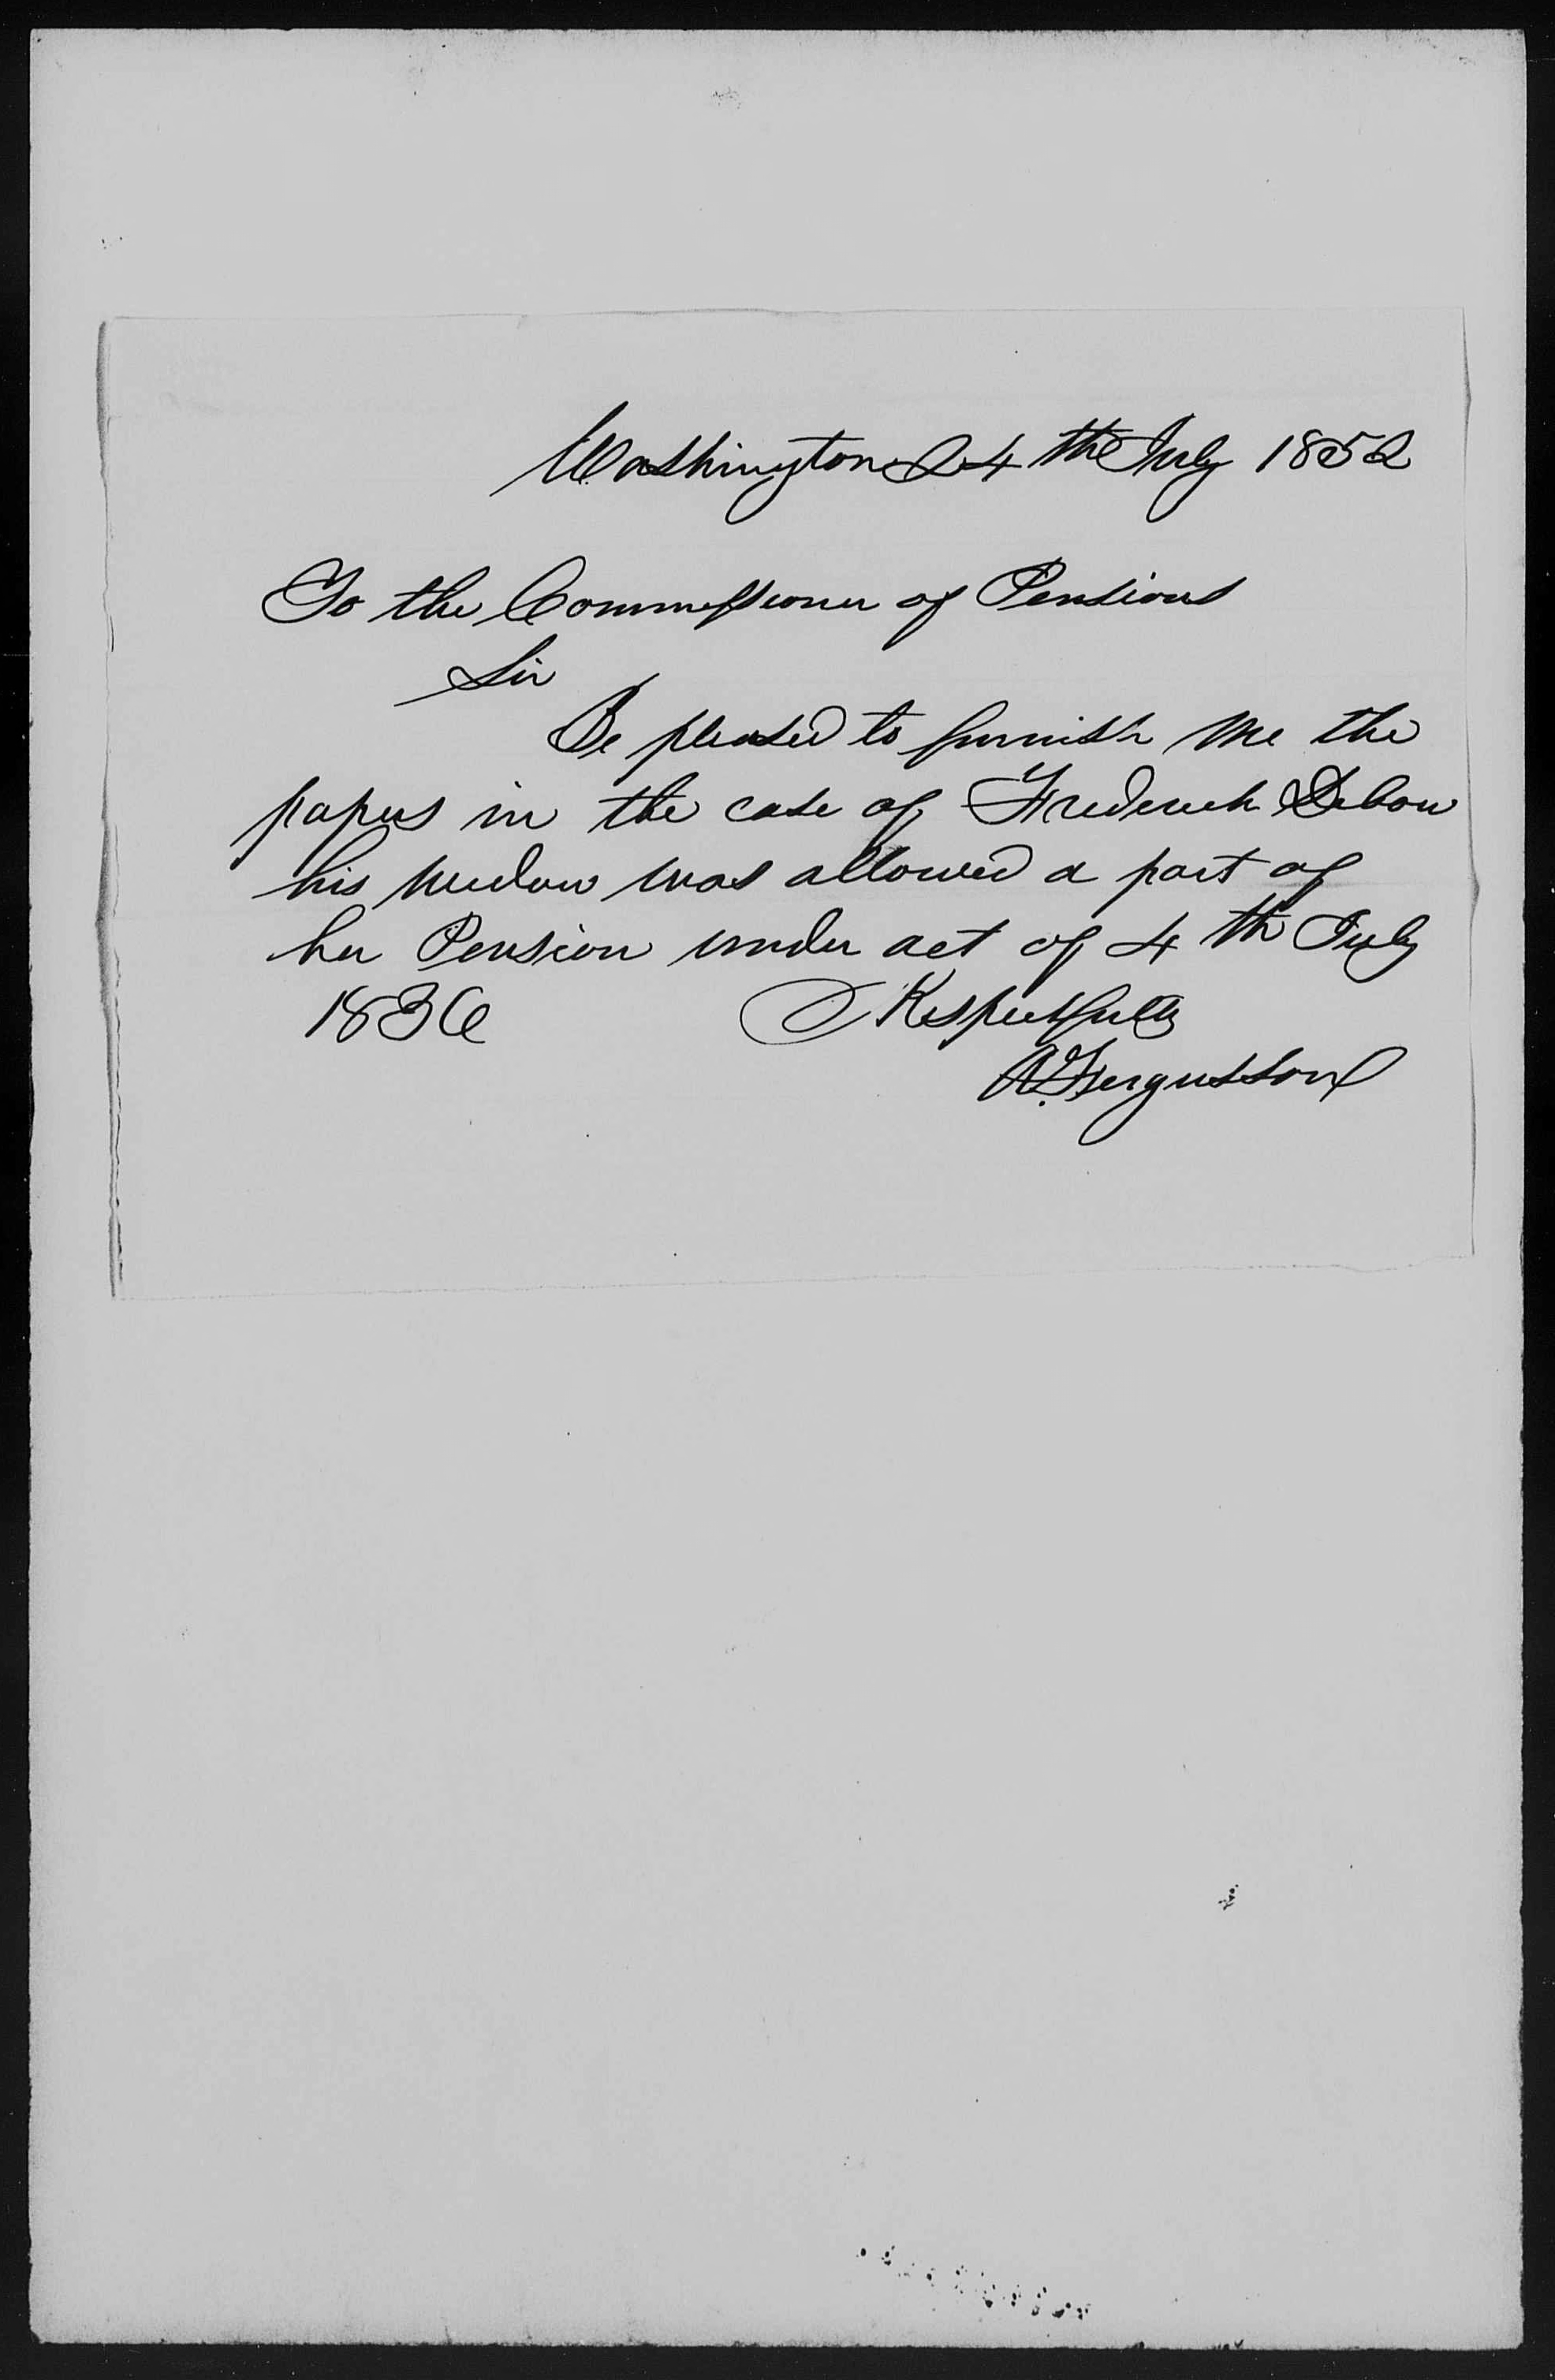 Washington 24th July 1852
To the Commissioner of Pensions
Sir
Be pleased to furnish me the
papers in the case of Frederick Debow
his widow was allowed a part of
her Pension under act of 4th July
1836 Respectfully
A. Fergusson